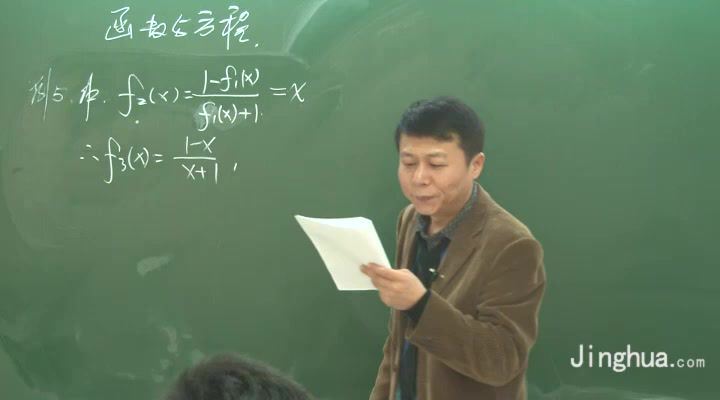 函数与方程.
例5. 解. f₂(x)=\frac{1-f₁(x)}{f₁(x)+1}=x
∴f₃(x)=\frac{1-x}{x+1},
Jinghua.com